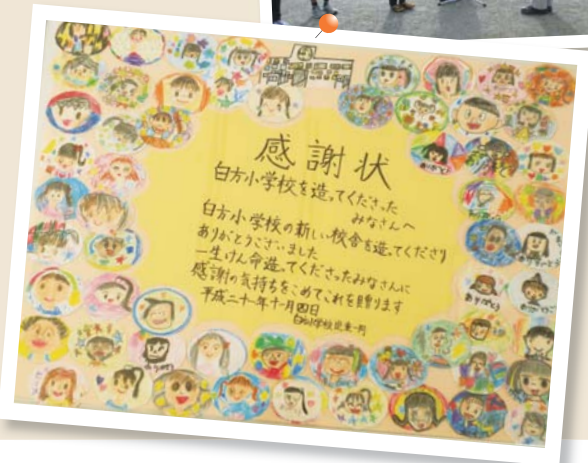 感謝状
白方小学校を造ってくださった
みなさんへ
白方小学校の新しい校舎を造ってくださり
ありがとうございました
一生けん命造ってくださったみなさんに
感謝の気持ちをこめてこれを贈ります
平成二十一年十一月四日
白方小学校児童一同
ありがとう
ありがとう
ありがとう
ありがとう